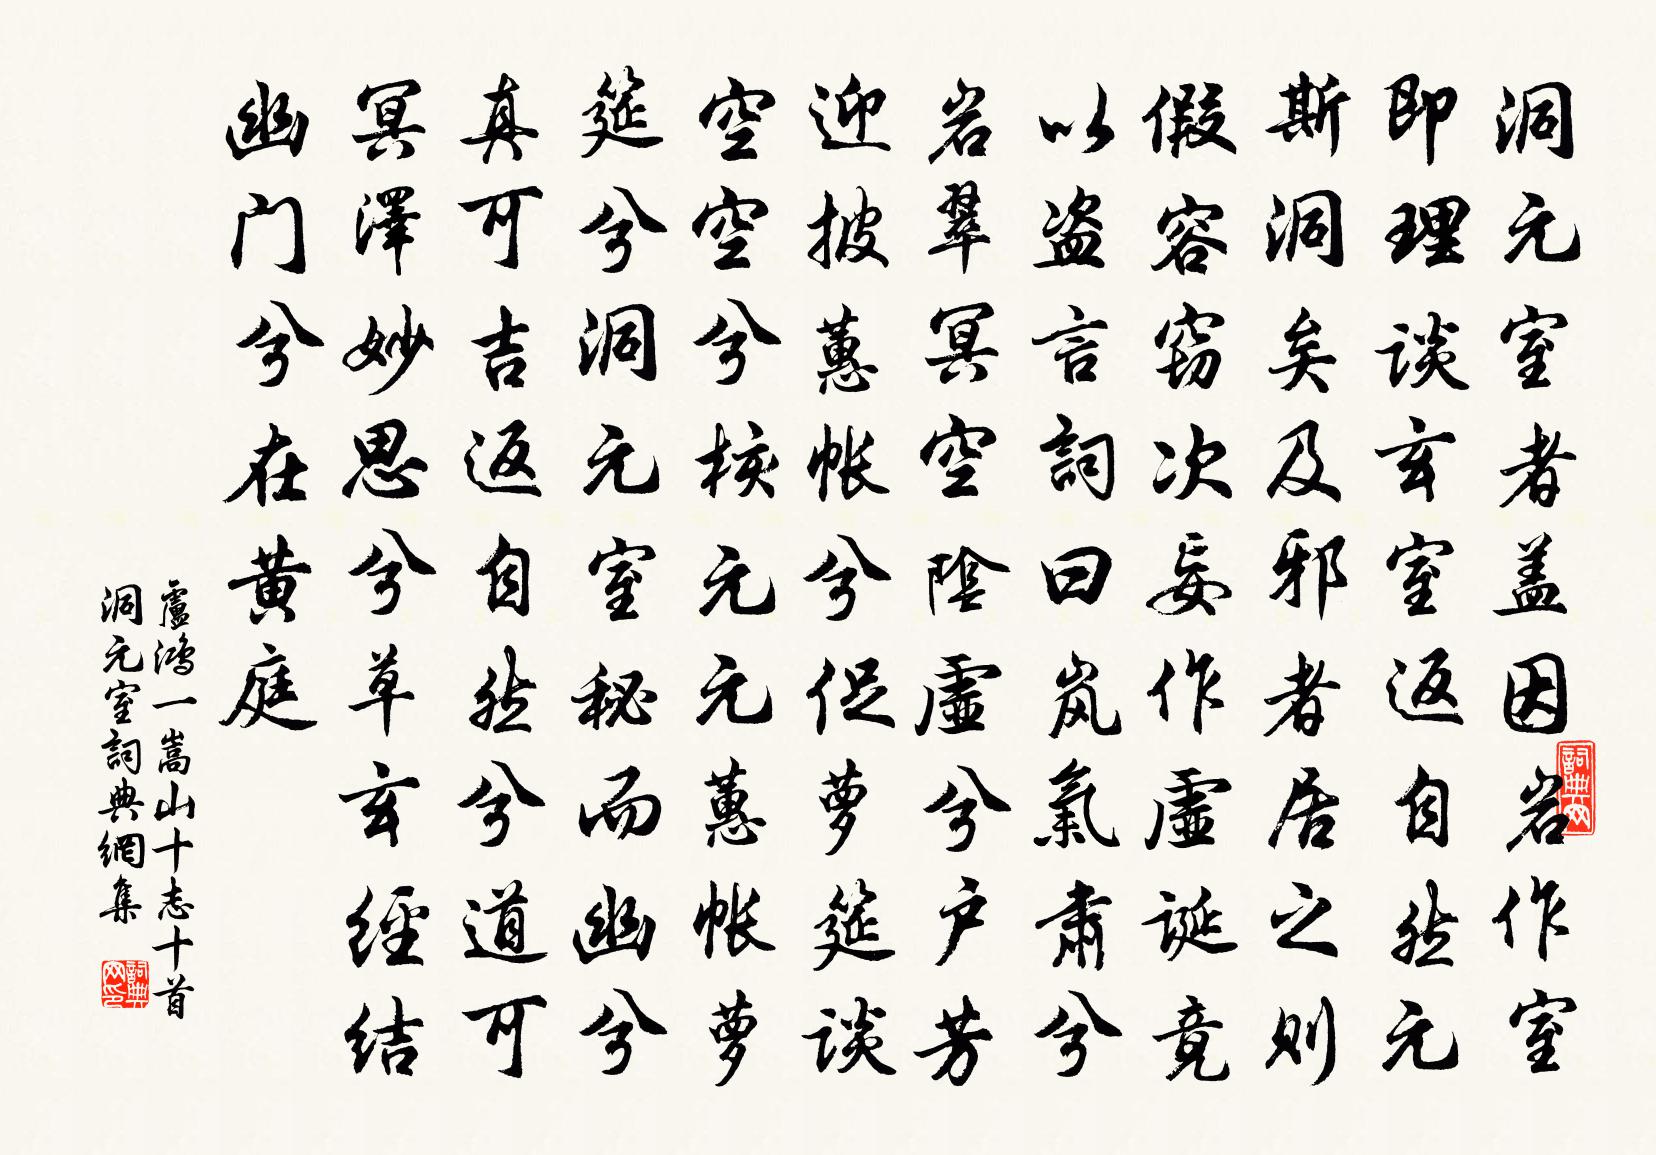 洞元室者盖因岩作室
即理谈玄室返自然元
斯洞矣及邪者居之则
假容窃次妄作虛诞竟
以盗言詞曰岚氣肅兮
岩翠冥空陰虛兮户芳
迎披蕙帐兮促萝筵谈
空空兮核元元蕙帐萝
筵兮洞元室秘而幽兮
真可吉返自然兮道可
冥澤妙思兮草玄經结
幽门兮在黄庭
盧鴻一嵩山十志十首
洞元室詞典網集
詞典网
詞典网印